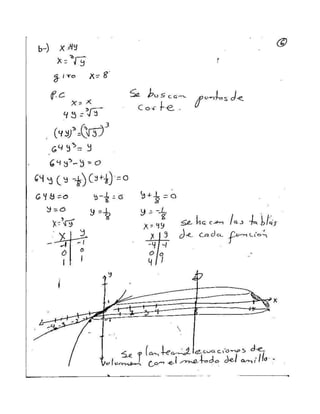 b-) x=4y
x=³√y
giro x=8
P.C Se buscan puntos de corte.
x=x
4y=³√y
(4y)³=(³√y)³
64y³=y
64y³-y=0
64y(y-1/8)(y+1/8)=0
64y=0 y-1/8=0 y+1/8=0
y=0 y=1/8 y=-1/8
x=³√y x=4y Se hacen las tablas de cada función
x y x y
-1 -1 -4 -1
0 0 0 0
1 1 4 1
y
x
Se plantean 2 ecuaciones de
Volumen con el metodo del anillo.